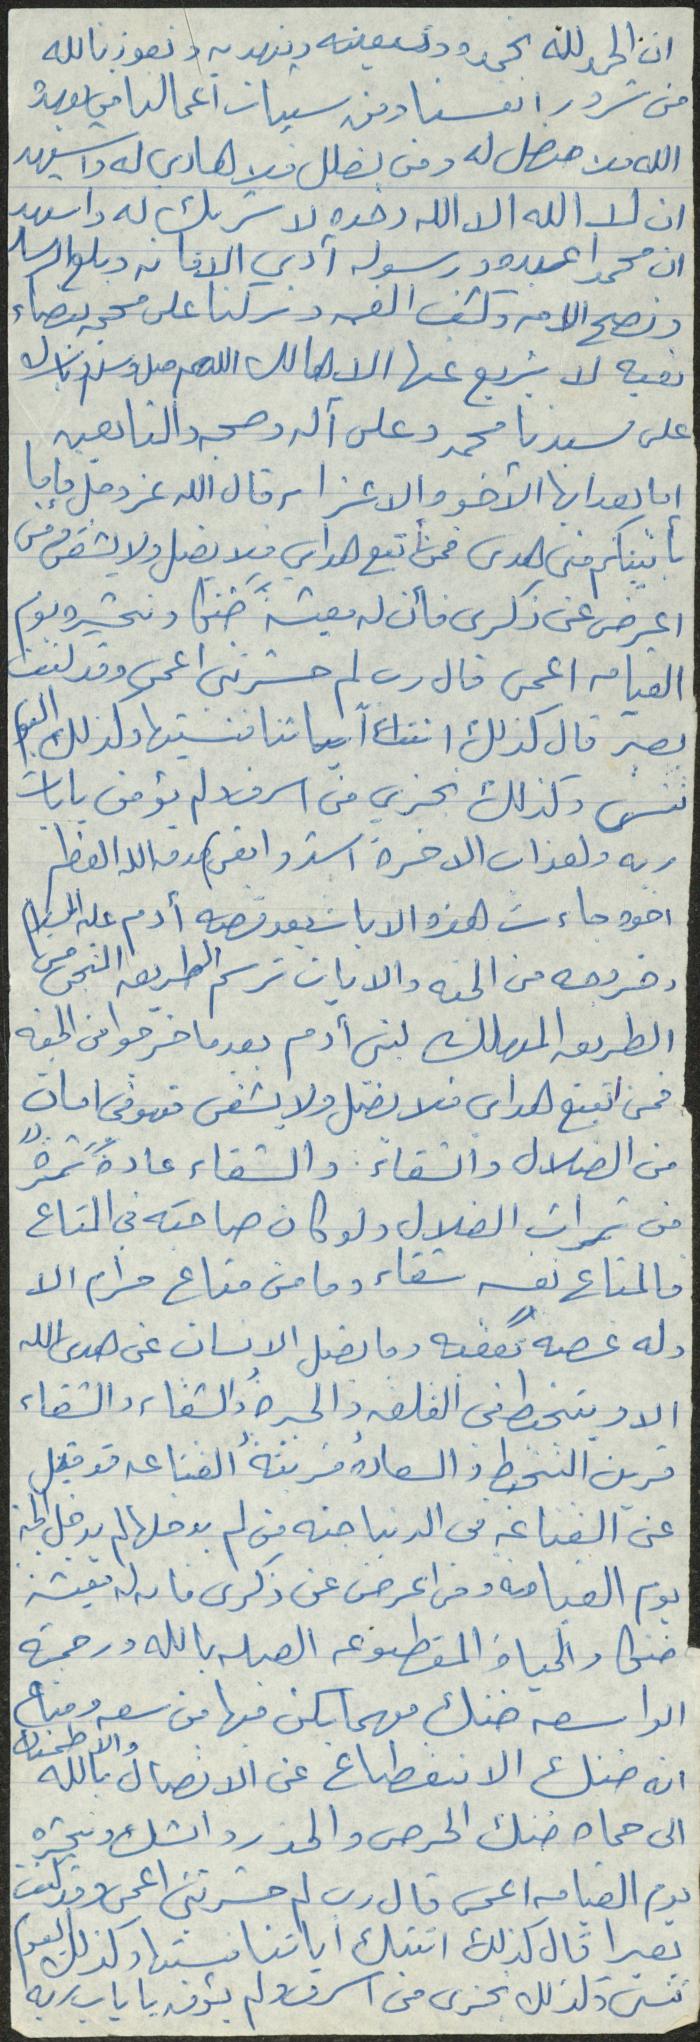 ان الحمد لله نحمده ونستعينه ونستهديه ونعوذ بالله
من شرور انفسنا ومن سيئات أعمالنا من يهده
الله فلا مضل له ومن يضلل فلا هادي له واشهد
ان لا اله الا الله وحده لا شريك له واشهد
ان محمدا عبده ورسوله أدى الامانه وبلغ الرساله
ونصح الامه وكشف الغمه وتركنا على محجه بيضاء
نقيه لا يزيغ عنها الا هالك اللهم صل وسلم وبارك
على سيدنا محمد وعلى آله وصحبه والتابعين
اما بعد ايها الأخوه الاعزاء قال الله عز وجل فإما
يأتينكم مني هدى فمن أتبع هداي فلا يضل ولا يشقى ومن
اعرض عن ذكرى فأن له معيشةً ضنكا ونحشره يوم
القيامه اعمى قال رب لم حشرتني اعمى وقد كنت
بصير قال كذلك اتتك آياتنا فنسيتها وكذلك اليوم
تنسى وكذلك نجزي من اسرف ولم يؤمن بايات
ربه ولعذاب الاخرة اشد وابقى صدق الله العظيم
اخوه جاءت هذه الايات بعد قصه أدم عليه السلام
وخروجه من الجنه والايات ترسم الطريعه المنجى من
الطريعه المهلك لبنى أدم بعد ما خرجوا من الجنه
فمن اتبع هداي فلا يضل ولا يشقى فهو في امان
من الضلال والشقاء والشقاء عادةً ثمرةً
من ثمرات الضلال ولو كان صاحبه في المتاع
فالمتاع نفسه شقاء وما من متاع حرام الا
وله غصه تعقبه وما يضل الانسان عن هدى الله
الا ويتخبط في القلقه والحيرة والشقاء والشقاء
قرين التخبط والسعادة قرينة القناعه قد قيل
عن القناعه في الدنيا جنه من لم يدخلها لم يدخل الجنه
يوم القيامه ومن اعرض عن ذكرى فان له معيشة
ضنكا والحياة المقطوعه الصله بالله ورحمته
الواسعه ضنك مهما يكن فيها من سعه ومتاع
انه ضنك الانقطاع عن الاتصال بالله والاطمئنان
الى حماه ضنك الحرص والحذر والشك ونحشره
يوم القيامه اعمى قال رب لم حشرتني اعمى وقد كنت
بصيرا قال كذلك اتتك أياتنا فنسيتها وكذلك اليوم
تنسى وكذلك نجزى من اسرف ولم يؤمن بايات ربه